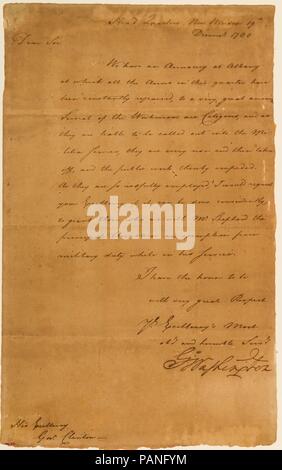 Head Quarters, New Windsor 19th
Decemr 1780
Dear Sir
We have an Armoury at Albany
at which all the Arms in this quarter have
been constantly repaired, to a very great amount
Several of the Workmen are Citizens, and as
they are liable to be called out into the Mi-
litia service, they are every now and then taken
off, and the public work thereby impeded.
As they are so usefully employed, I would request
your Excellency if it can be done consistently
to grant
military duty while in his service.
I have the honor to be
with very great Respect
Yr Excellency's Most
Obt and humble Servt
Go Washington
His Excellency
Govr Clinton
alamy
Image ID: PANFYM
www.alamy.com